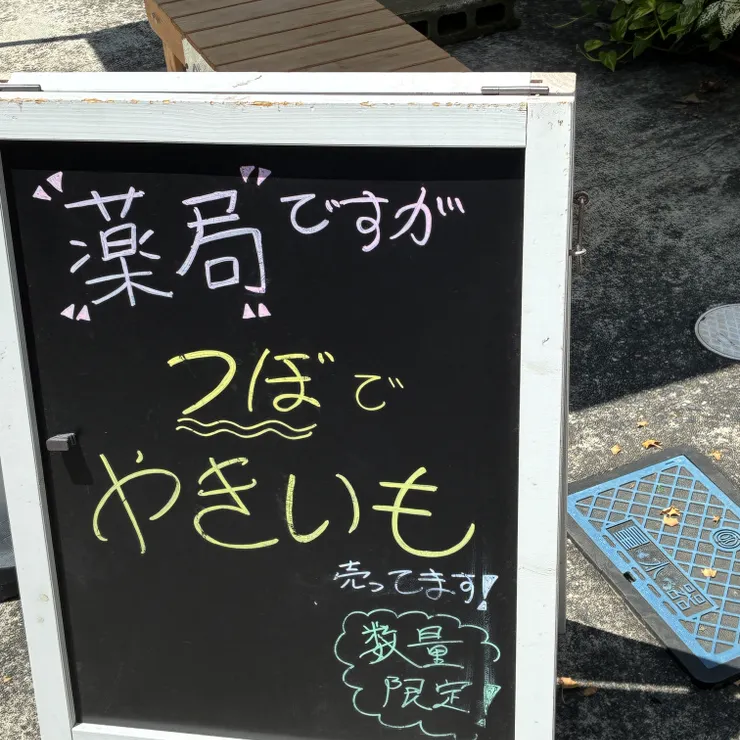 "薬局"ですが
つぼで
やきいも
売ってます!
数量
限定!
量水器